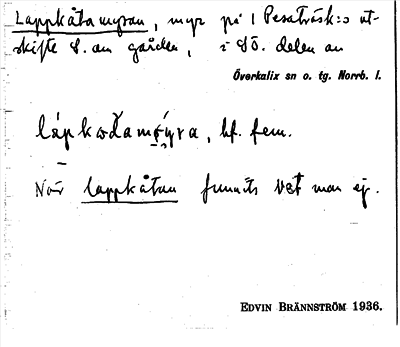 Lappkåtamyran, myr på 1 Pesaträsk:s ut-
skifte S. om gården, i SÖ. delen av
Överkalix sn o. tg. Norrb. l.
hf. fem.
När lappkåtan funnits vet man ej.
EDVIN BRÄNNSTRÖM 1936.